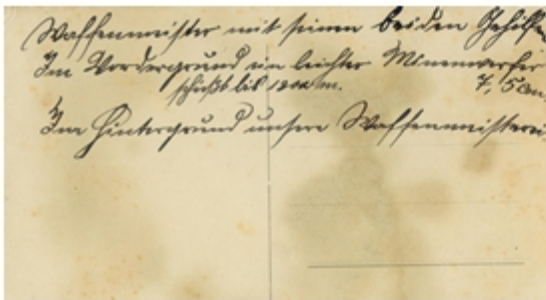 Waffenmeister mit seinen beiden Gehilfen
Im Vordergrund ein leichter Minenwerfer
schießt bis 1200 m. 7,5 cm.
Im Hintergrund unsere Waffenmeisterei